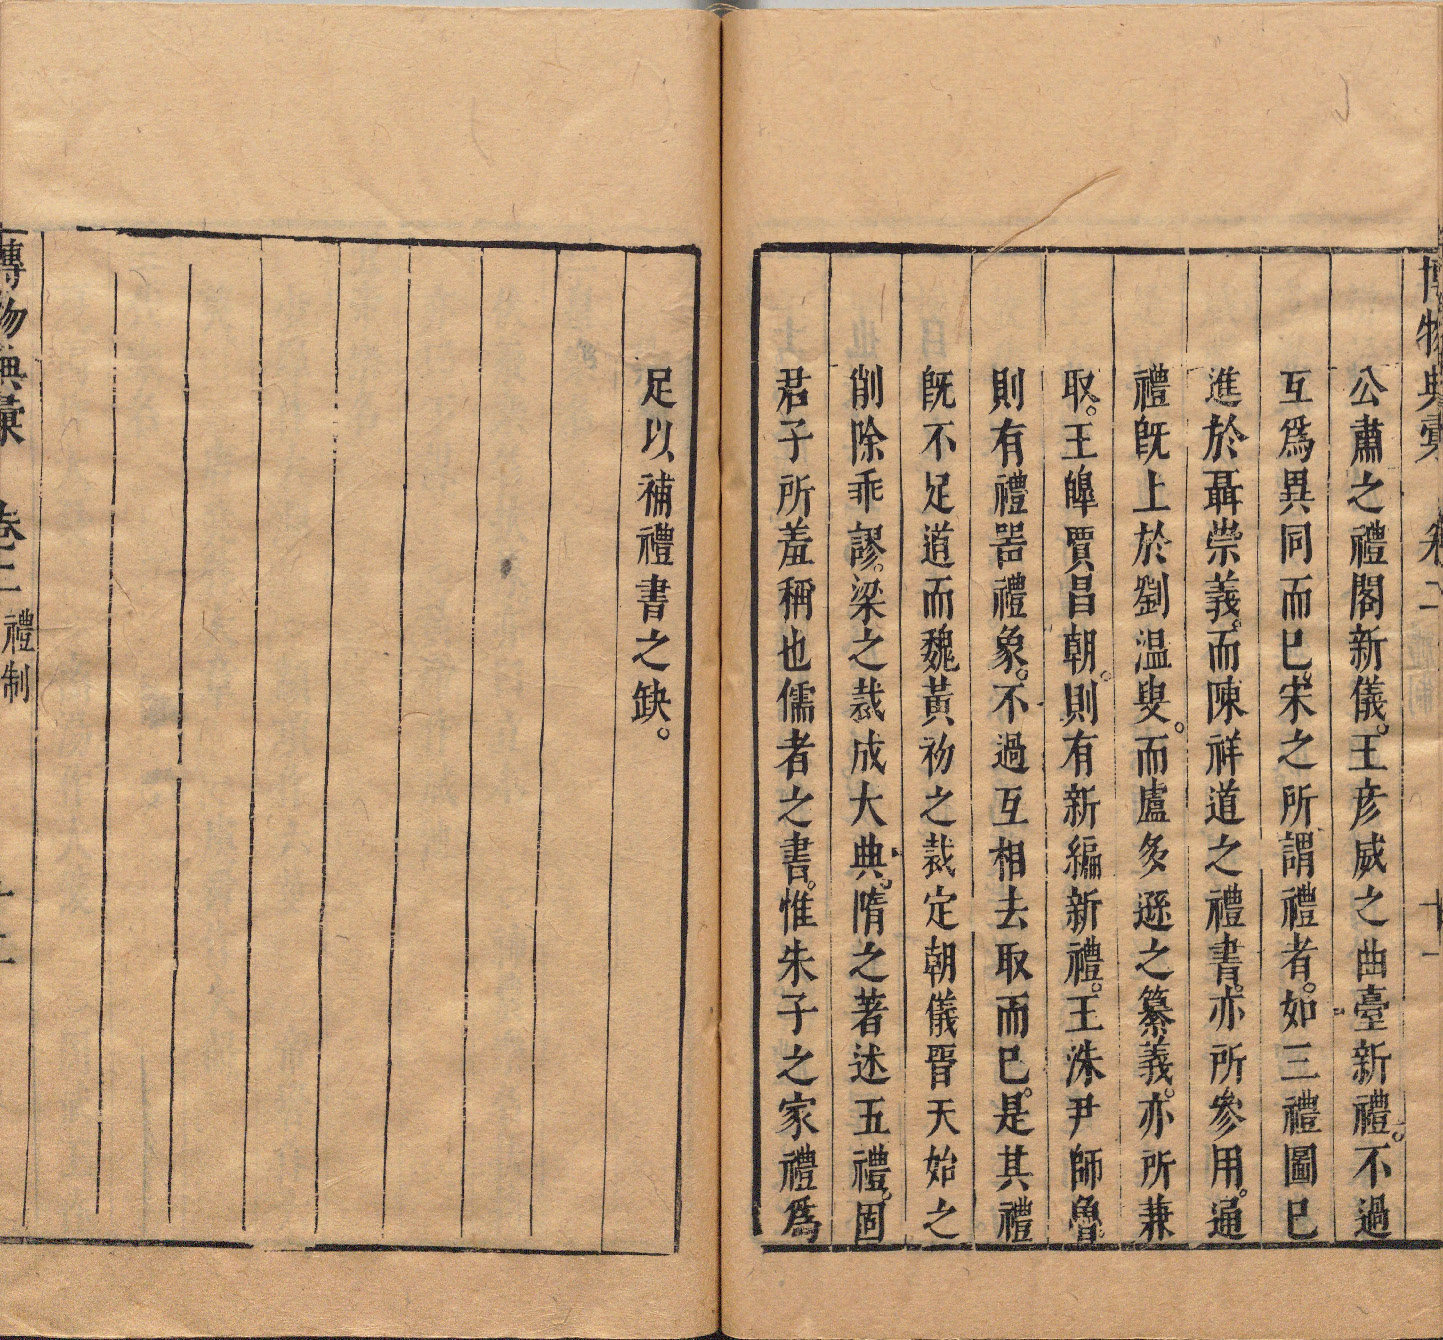 博物典彙 卷二 十一
公肅之禮閣新儀。王彥威之曲臺新禮。不過
互爲異同而已。宋之所謂禮者。如三禮圖已
進於聶崇義。而陳祥道之禮書。亦所參用。通
禮旣上於劉溫叟。而盧多遜之纂義。亦所兼
取。王皥賈昌朝。則有新編新禮。王洙尹師魯。
則有禮噐禮象。不過互相去取而已。是其禮
旣不足道而魏黃初之裁定朝儀晉天始之
削除乖謬。梁之裁成大典。隋之著述五禮。固
君子所羞稱也儒者之書。惟朱子之家禮爲
足以補禮書之缺。
博物典彙 卷二 禮制 十二